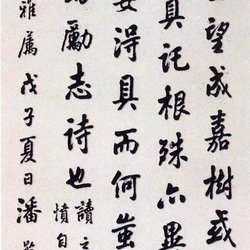 望成嘉樹或
具託根殊亦異
得具而何蚩
勵志詩也讀
憤自
雅屬戊子夏日潘